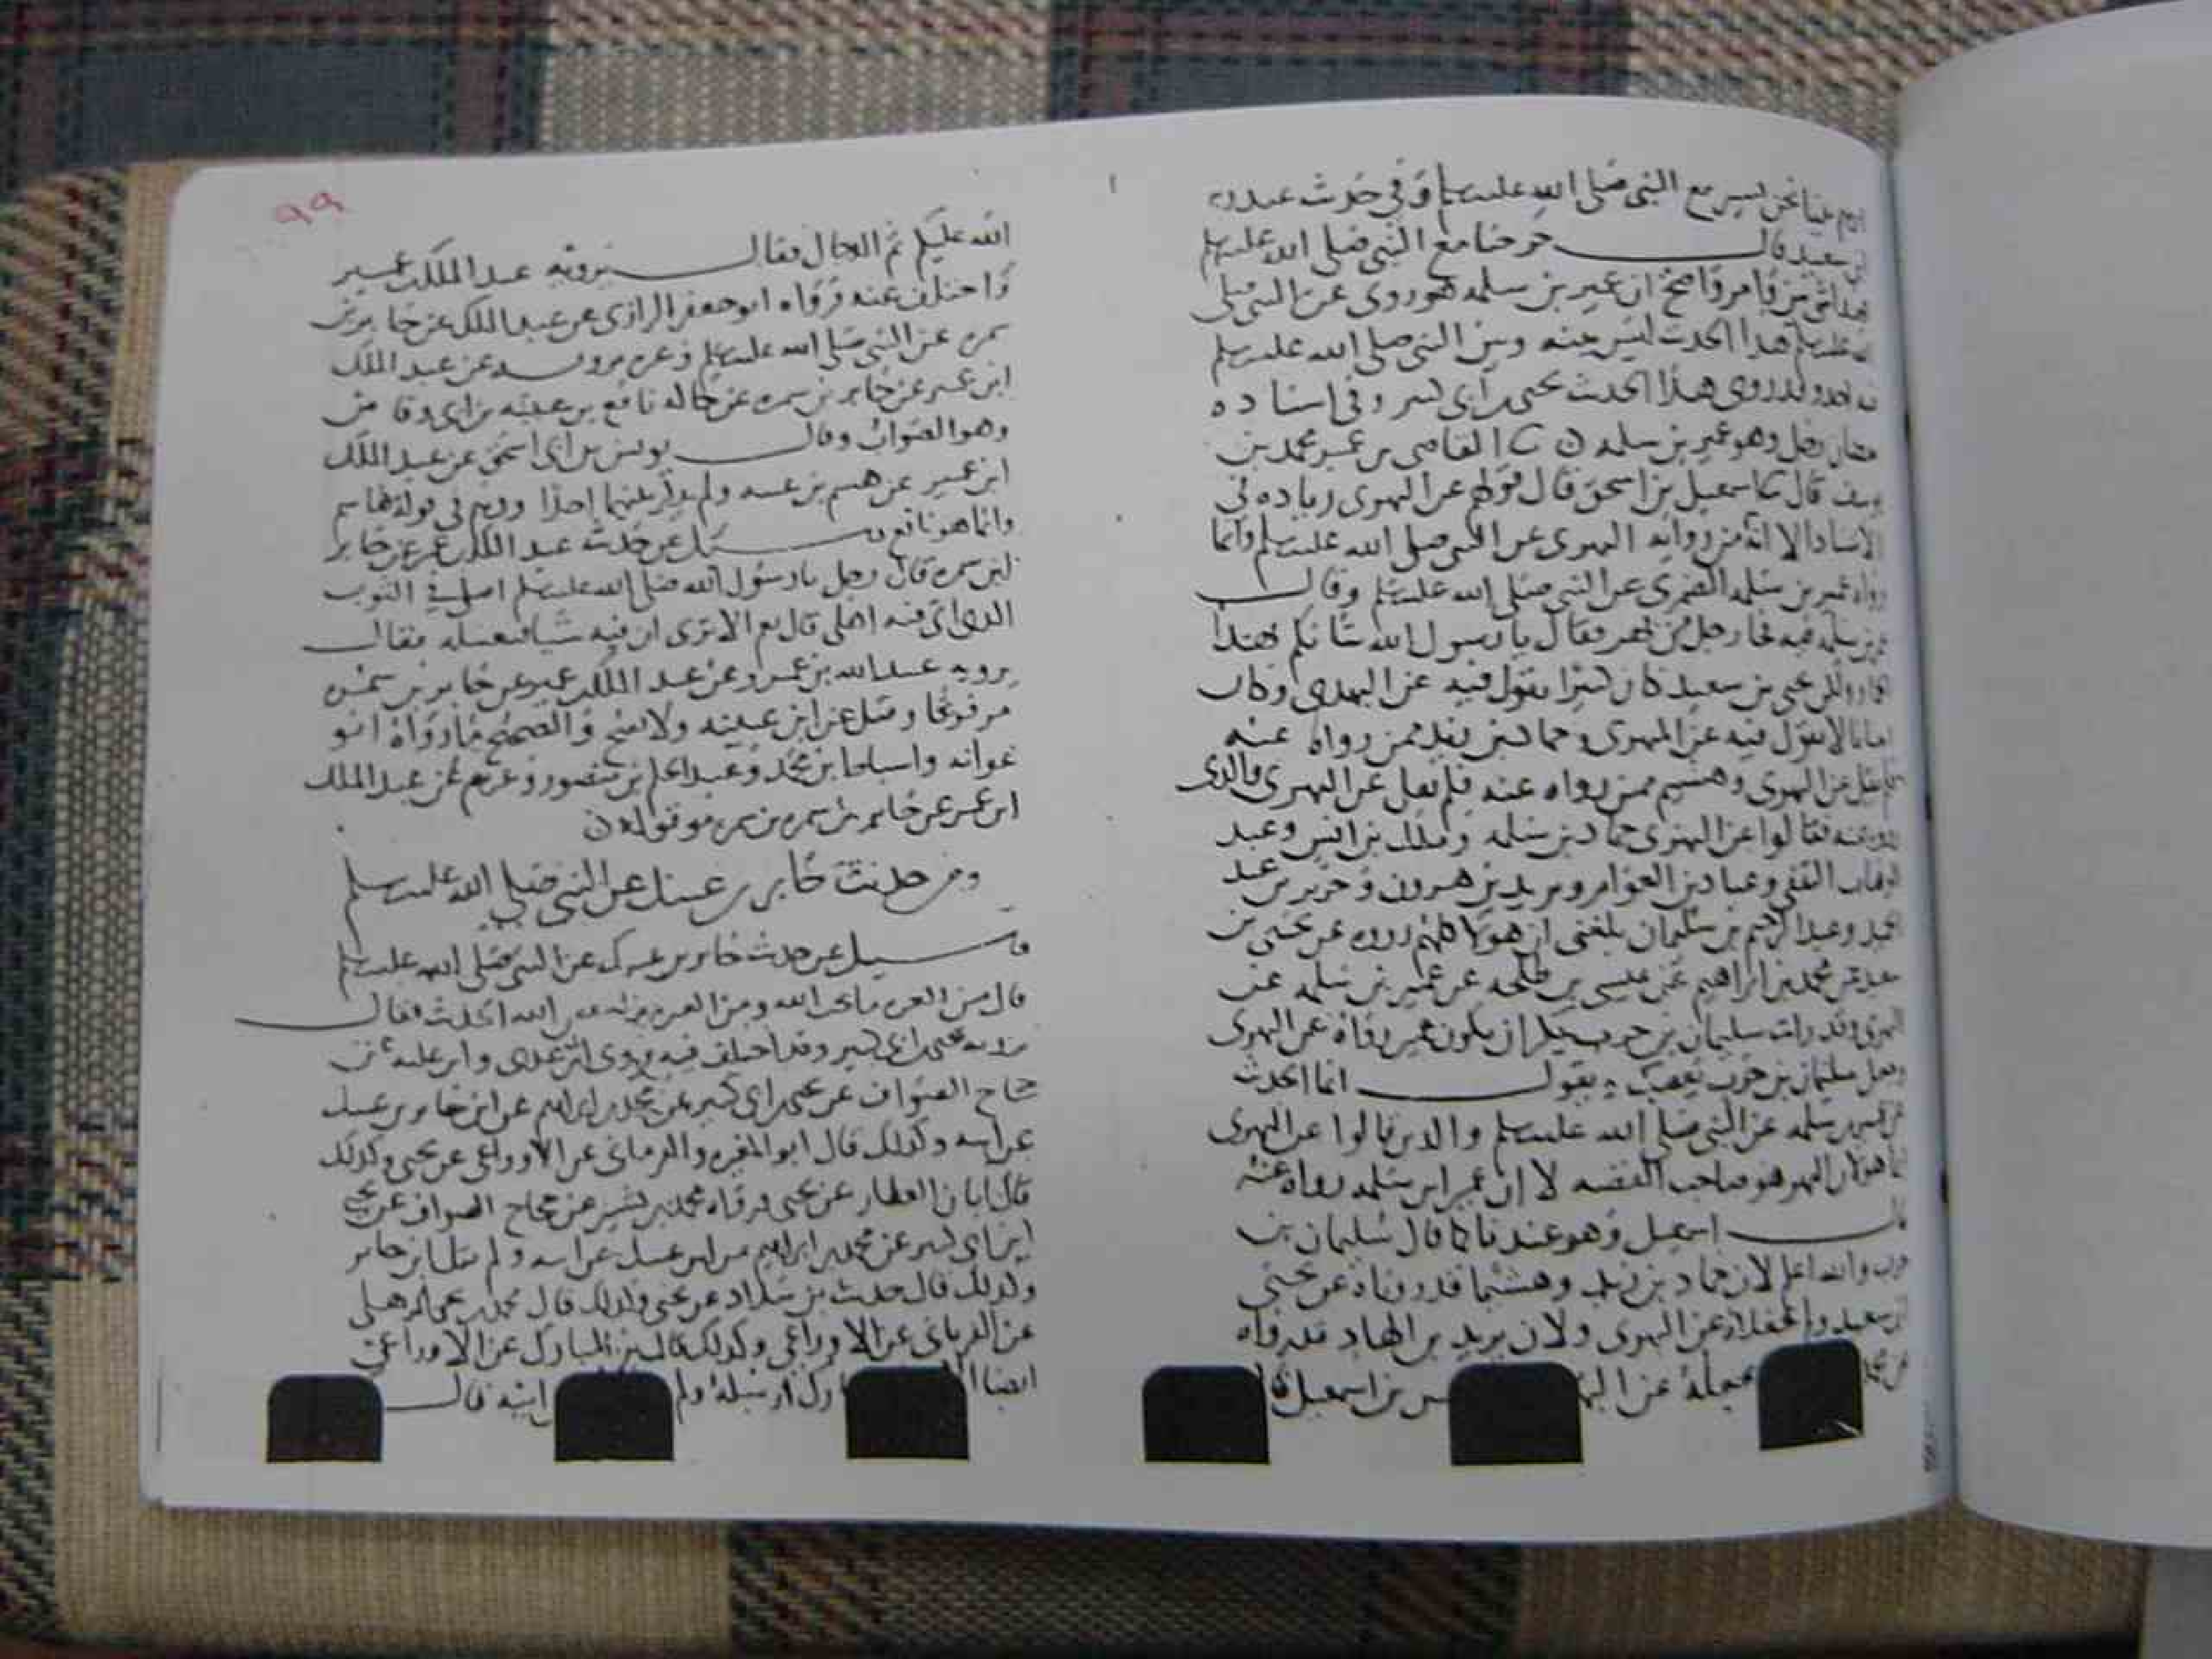 نحن نسير مع النبي صلى الله عليه وسلم وفي حديث
بن سعيد قال خرجنا مع النبي صلى الله عليه وسلم
ان عمير بن سلمه هو روى عن النبي صلى
الله عليه وسلم هذا الحديث ليس بينه وبين النبي صلى الله عليه وسلم
احد وقد روى هذا الحديث يحيى بن ابي كثير وفي اسناده
رجل وهو عمير بن سلمه القاضي محمد بن
يوسف قال اسمعيل بن اسحق قال قولهم عن البهزي زياده في
الاسناد الا انه من روايه البهزي عن النبي صلى الله عليه وسلم وانما
رواه عمير بن سلمه الضمري عن النبي صلى الله عليه وسلم وقال
بن سلمه فيه فجا رجل من بهز فقال يا رسول الله شانكم هذا
يحيى بن سعيد كان كثيرا يقول فيه عن البهزي وكان
احيانا لا يقول فيه عن البهزي وحماد بن زيد ممن رواه عنه
يقل عن البهزي وهشيم ممن رواه عنه فلم يقل عن البهزي والذي
عنه فقالوا عن البهزي حماد بن سلمه ومالك بن انس وعبد
الوهاب الثقفي وعباد بن العوام ويزيد بن هرون وجرير بن عبد
الحميد وعبد الرحيم بن سليمان بلغني ان هولا كلهم رووه عن يحيى بن
سعيد عن محمد بن ابراهيم عن عيسى بن طلحه عن عمير بن سلمه عن
البهزي وقد رايت سليمان بن حرب ان يكون عمير رواه عن البهزي
سليمان بن حرب يقول انما الحديث
عن عمير بن سلمه عن النبي صلى الله عليه وسلم والذين قالوا عن البهزي
ان البهزي هو صاحب القصه لا ان عمير ابن سلمه رواه عنه
قال اسمعيل وهو عندنا كما قال سليمان بن
حرب والله اعلم لان حماد بن زيد وهشيما قد روياه عن يحيى
بن سعيد عن البهزي ولان يزيد بن الهاد قد رواه
عن البه بن اسمعيل
٩٩
الله عليكم ثم الدجال فقال يرويه عبد الملك بن عمير
واختلف عنه فرواه ابو جعفر الرازي عن عبد الملك عن جابر بن
سمره عن النبي صلى الله عليه وسلم وغيره يرويه عن عبد الملك
ابن عمير عن جابر بن سمره عن خاله نافع بن عتبه بن ابي وقاص
وهو الصواب وقال يونس بن ابي اسحق عن عبد الملك
ابن عمير عن هاشم بن عتبه ولم يذكر بينهما احدا ووهم في قوله هاشم
وانما هو نافع سئل عن حديث عبد الملك بن عمير عن جابر
ابن سمره قال رجل يا رسول الله صلى الله عليه وسلم اصلي في الثوب
الذي اتي فيه اهلي قال نعم الا ترى ان فيه شيا فتغسله فقال
يرويه عبيد الله بن عمرو عن عبد الملك بن عمير عن جابر بن سمره
مرفوعا وقيل عن ابن عيينه ولا يصح والصحيح ما رواه ابو
عوانه واسباط بن محمد وعبد الحكم بن منصور وغيرهم عن عبد الملك
ابن عمير عن جابر بن سمره موقوفا
ومن حديث جابر بن عتيك عن النبي صلى الله عليه وسلم
سئل عن حديث جابر بن عتيك عن النبي صلى الله عليه وسلم
قال من الغيره ما يحب الله ومن الغيره ما يبغض الله الحديث فقال
يرويه يحيى بن ابي كثير وقد اختلف فيه فروى ابن ابي عدي وابن عليه عن
حجاج الصواف عن يحيى بن ابي كثير عن محمد بن ابراهيم عن ابن جابر بن عتيك
عن ابيه وكذلك قال ابو المغيره والفريابي عن الاوزاعي عن يحيى وكذلك
قال ابان العطار عن يحيى ورواه محمد بن بشر عن حجاج الصواف عن يحيى
ابن ابي كثير عن محمد بن ابراهيم عن ابن عتيك عن ابيه ولم يقل ابن جابر
وكذلك قال حرب بن شداد عن يحيى وكذلك قال محمد بن يحيى الذهلي
عن الفريابي عن الاوزاعي وكذلك قال ابن المبارك عن الاوزاعي
ايضا ارسله ولم ابيه قال